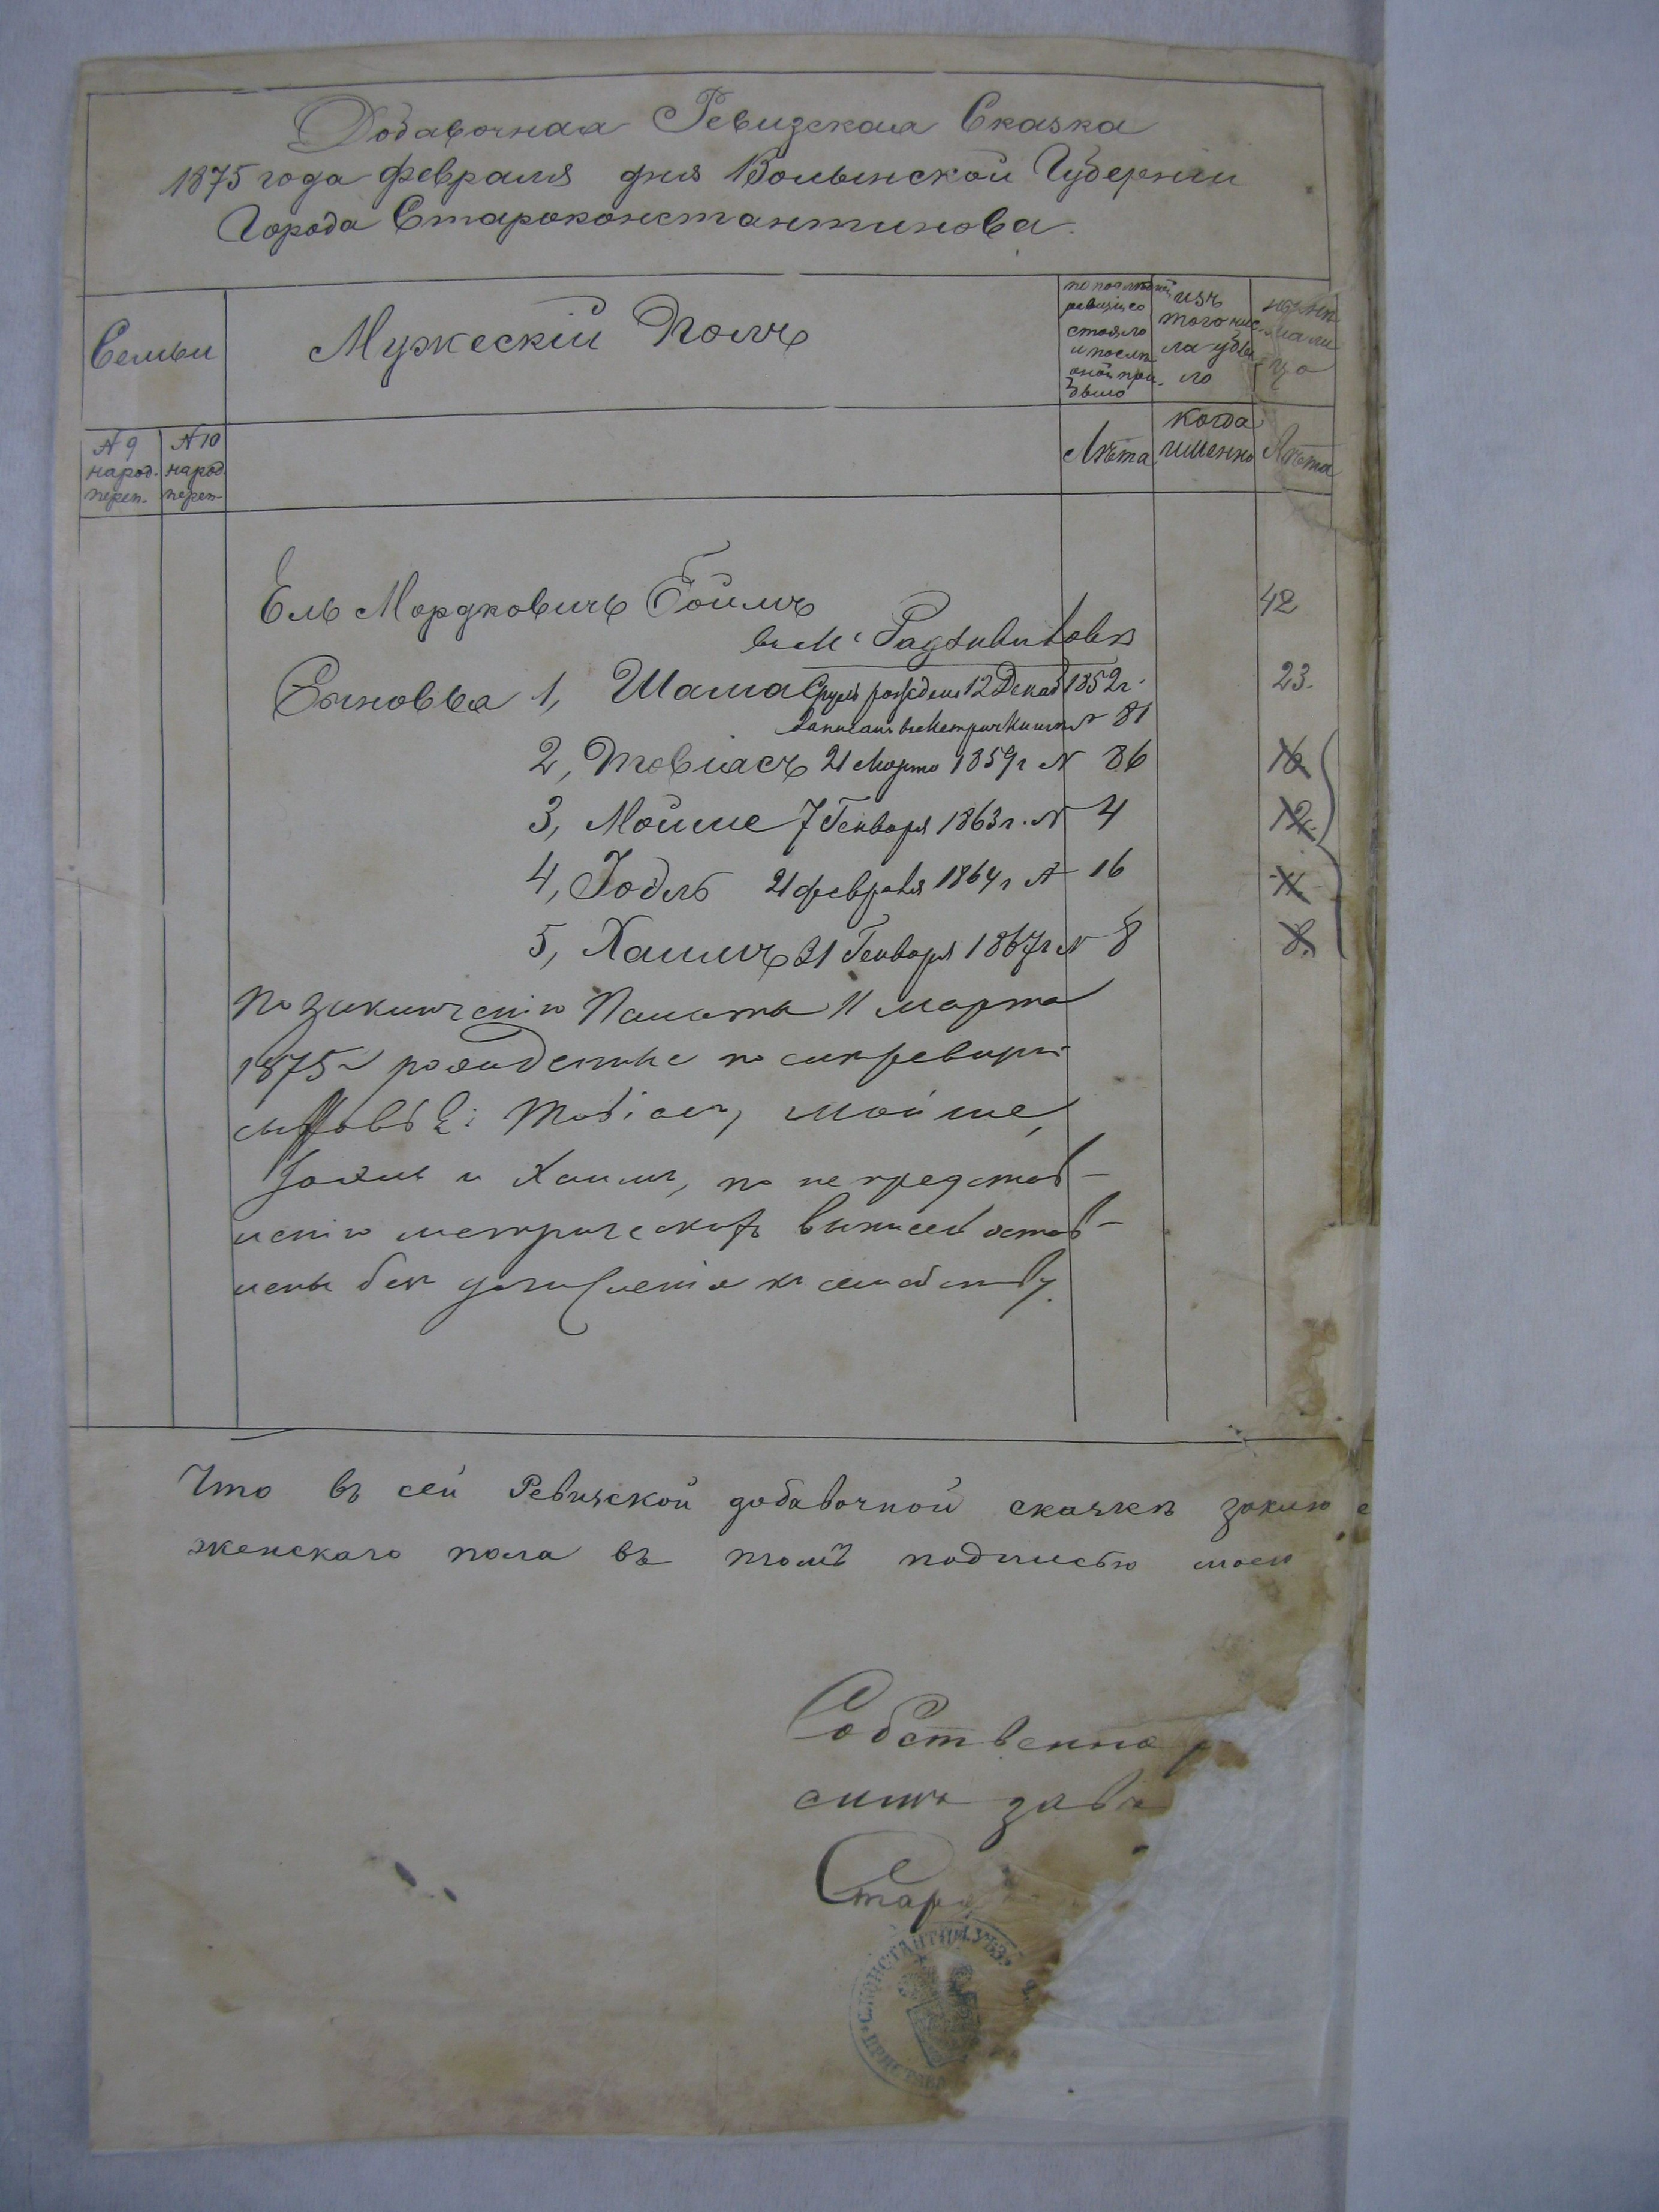 Добавочная Ревизская Сказка
1875 года февраля дня Волынской Губерніи
Города Староконстантинова.
Семьи
Мужескій Полъ
по последней
ревизіи со
стояло
и после
оной при
было
изъ
того чис
ла убы
ло
ны
лицо
№ 9
народ.
переп.
№ 10
народ
переп.
Лѣта
когда
именно
Лѣта
Ель Мордковичъ Бойм 42
въ М. Радзивиловѣ
Сыновья 1, Шама Сруль рожден 12 Декаб 1852 г. 23.
записанъ въ Метрич Книги № 81
2, Товіасъ 21 Марта 1859 г № 86 16
3, Мойше 7 Генваря 1863 г. № 4 12.
4, Іодль 21 февраля 1864 г № 16 11.
5, Хаимъ 31 Генваря 1867 г № 8 8.
По заключенію Палаты 11 марта
1875 г рожденные по
сыновья: Товіасъ, Мойше,
и Хаимъ, по непредстав-
ленію метрическихъ выписей остав-
лены без причисленія къ семейству.
Что въ сей Ревизской добавочной сказкѣ заклю
женскаго пола въ томъ подписью моею
Собственно р
симъ
Старо
КОНСТАНТИН. УѢЗ
ПРИСТАВА